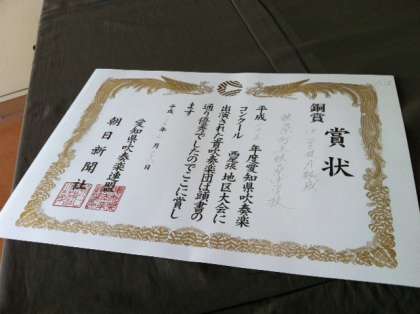 賞状
銅賞
平成 年度愛知県吹奏楽
コンクール 西尾張 地区大会に
出演された貴吹奏楽団は頭書の
通り優秀でしたのでここに賞し
ます
平成 年 月 日
愛知県吹奏楽連盟
朝日新聞社